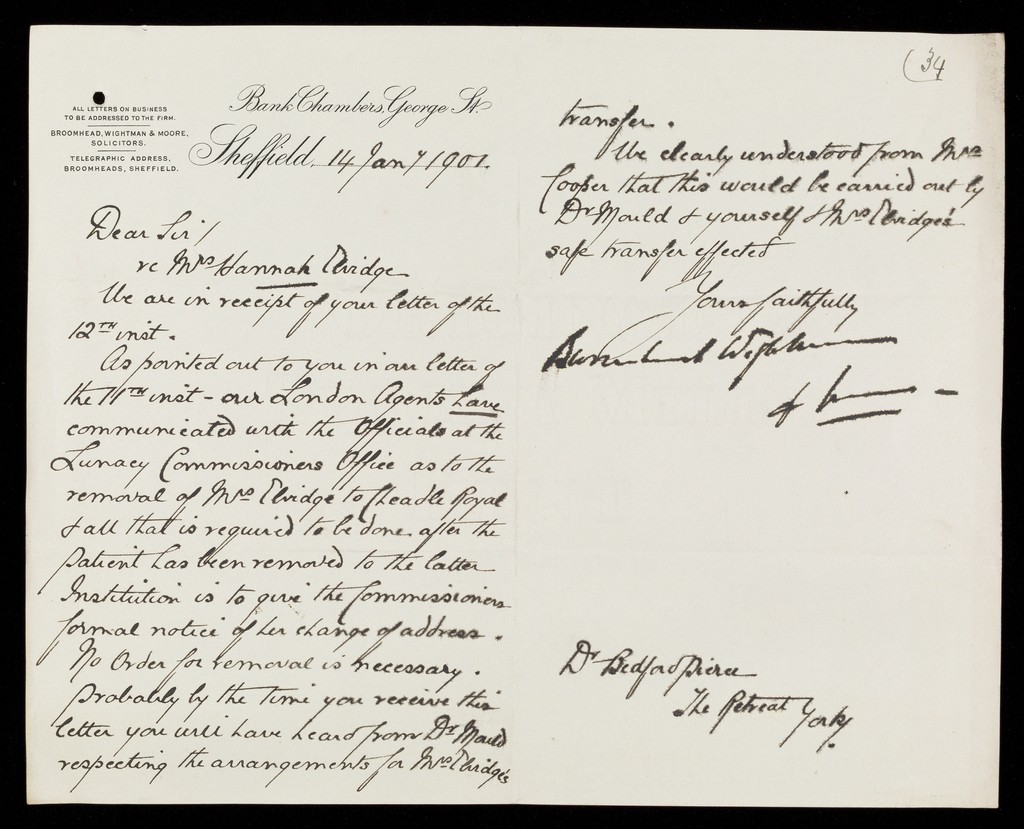 ALL LETTERS ON BUSINESS
TO BE ADDRESSED TO THE FIRM.
BROOMHEAD, WIGHTMAN & MOORE,
SOLICITORS.
TELEGRAPHIC ADDRESS,
BROOMHEADS, SHEFFIELD.
Bank Chambers, George St.
Sheffield, 14 Jany 1901.
Dear Sir/
re Mrs Hannah Elvidge
We are in receipt of your letter of the
12TH inst.
As pointed out to you in our letter of
the 11TH inst - our London Agents have
communicated with the Officials at the
Lunacy Commissioners Office as to the
removal of Mrs Elvidge to Cheadle Royal
& all that is required to be done after the
patient has been removed to the latter
Institution is to give the Commissioners
formal notice of her change of address.
No Order for removal is necessary.
Probably by the time you receive this
letter you will have heard from Dr Mould
respecting the arrangements for Mrs Elvidge's
(34
transfer.
We clearly understood from Mrs
Cooper that this would be carried out by
Dr Mould & yourself & Mrs Elvidge's
safe transfer effected
Yours faithfully
Broomhead Wightman
& Moore
Dr Bedford Pierce
The Retreat York.